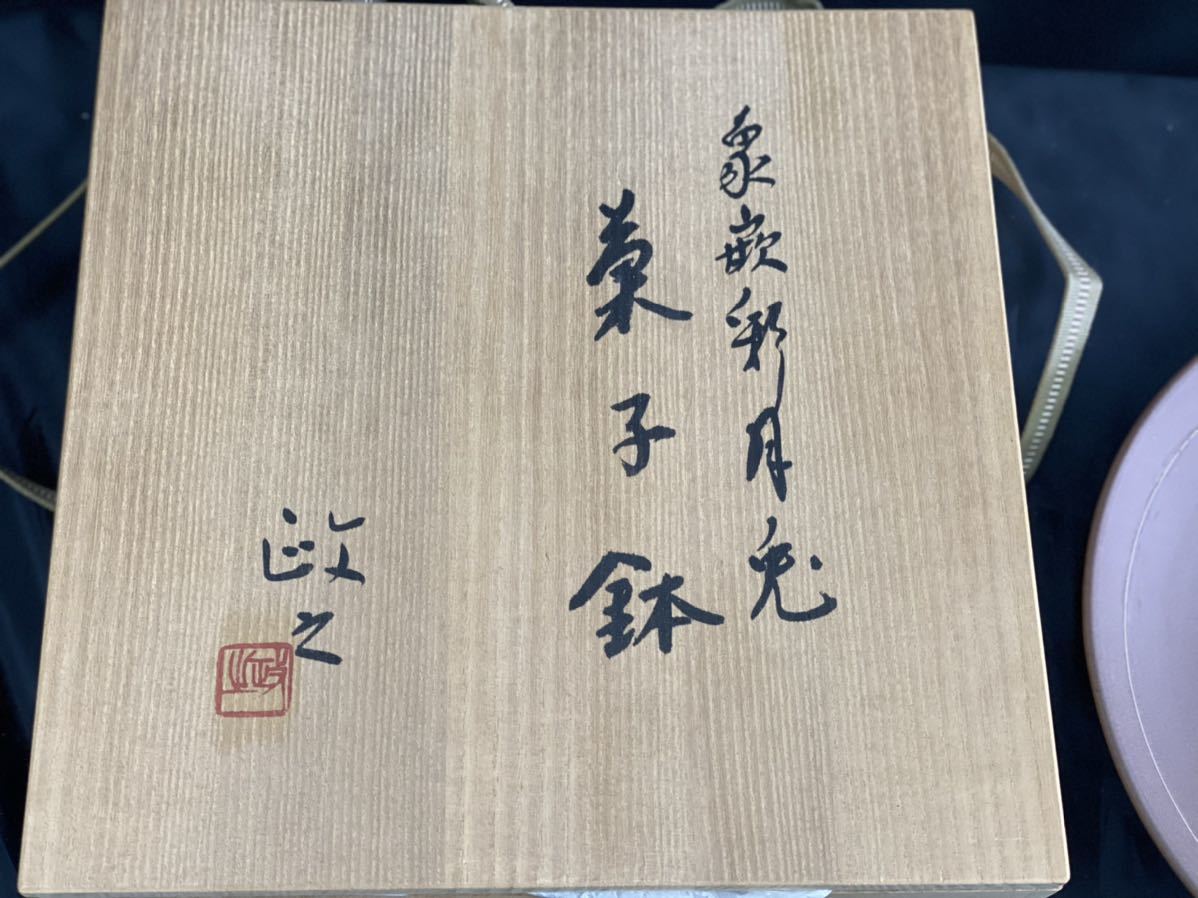 象嵌彩月兎
菓子鉢
政之
政之